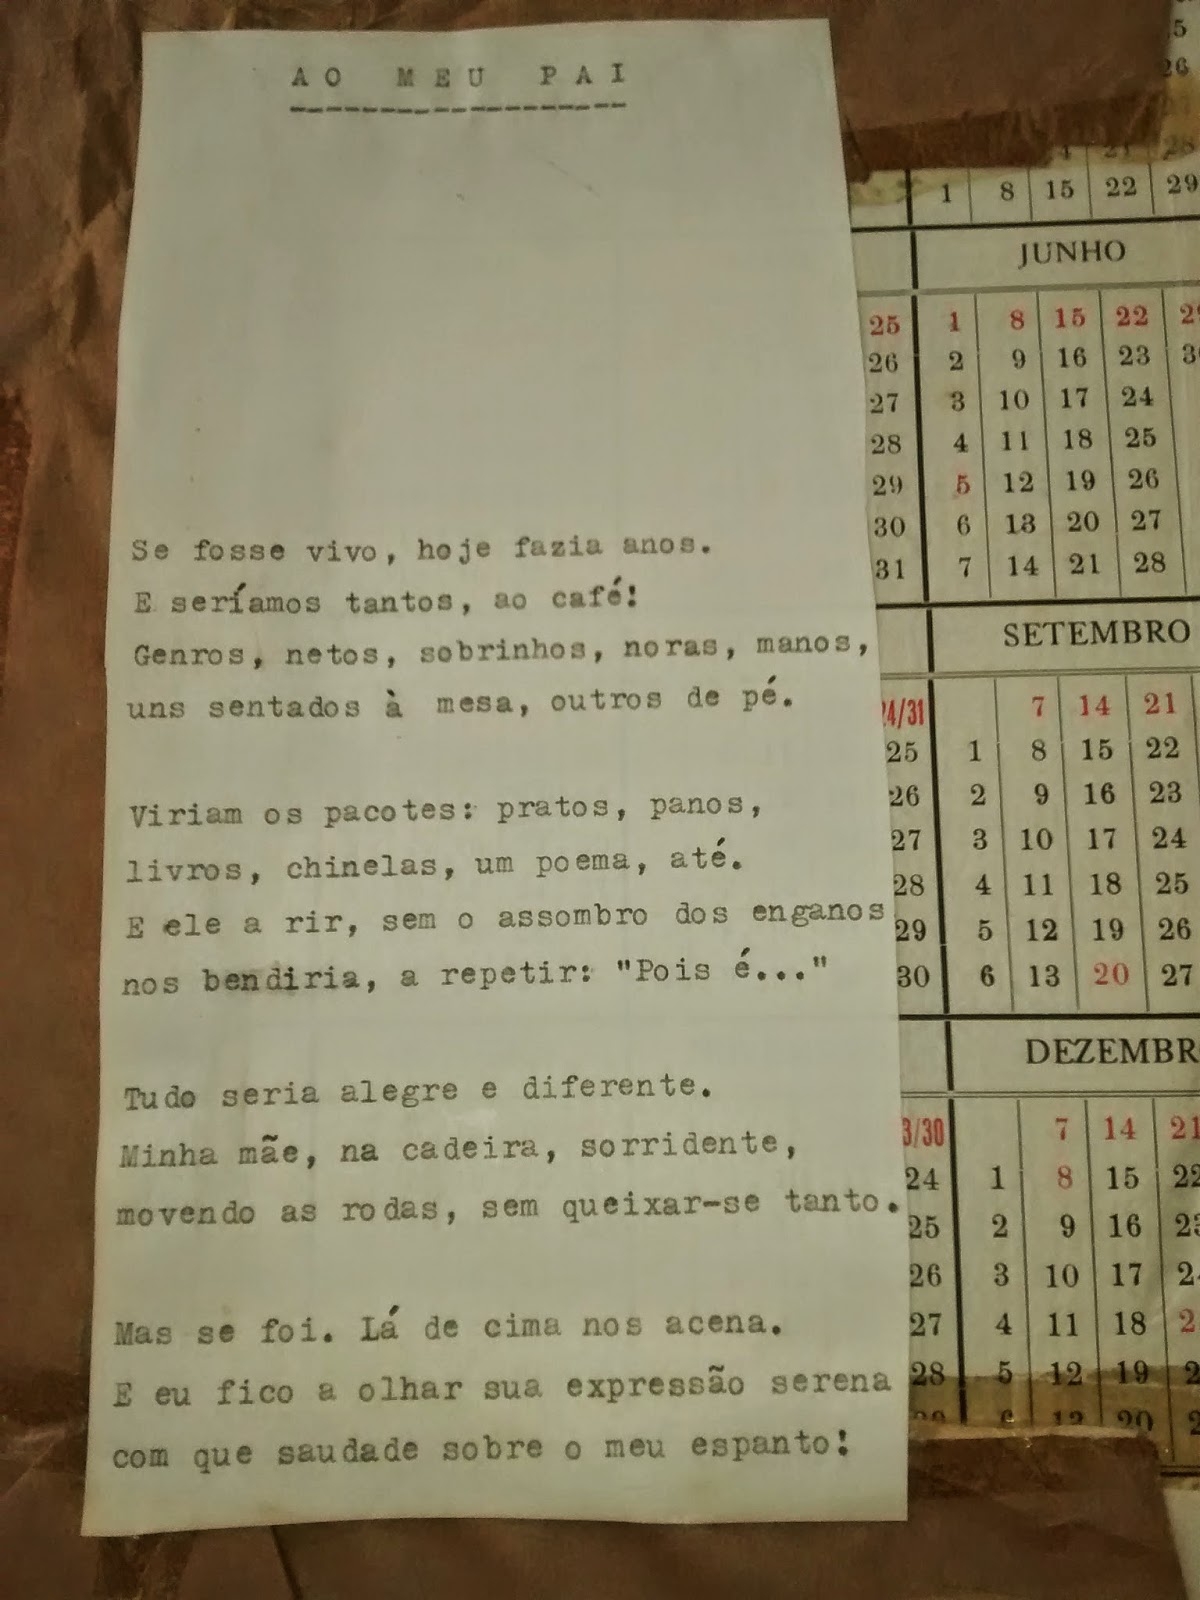 AO MEU PAI
Se fosse vivo, hoje fazia anos.
E seríamos tantos, ao café!
Genros, netos, sobrinhos, noras, manos,
uns sentados à mesa, outros de pé.
Viriam os pacotes: pratos, panos,
livros, chinelas, um poema, até.
E ele a rir, sem o assombro dos enganos
nos bendiria, a repetir: "Pois é..."
Tudo seria alegre e diferente.
Minha mãe, na cadeira, sorridente,
movendo as rodas, sem queixar-se tanto.
Mas se foi. Lá de cima nos acena.
E eu fico a olhar sua expressão serena
com que saudade sobre o meu espanto!
26
28
1 8 15 22 29
JUNHO
25 1 8 15 22
26 2 9 16 23
27 3 10 17 24
28 4 11 18 25
29 5 12 19 26
30 6 13 20 27
31 7 14 21 28
SETEMBRO
7 14 21
25 1 8 15 22
26 2 9 16 23
27 3 10 17 24
28 4 11 18 25
29 5 12 19 26
30 6 13 20 27
DEZEMBR
7 14 21
24 1 8 15 22
25 2 9 16
26 3 10 17
27 4 11 18
28 5 12 19